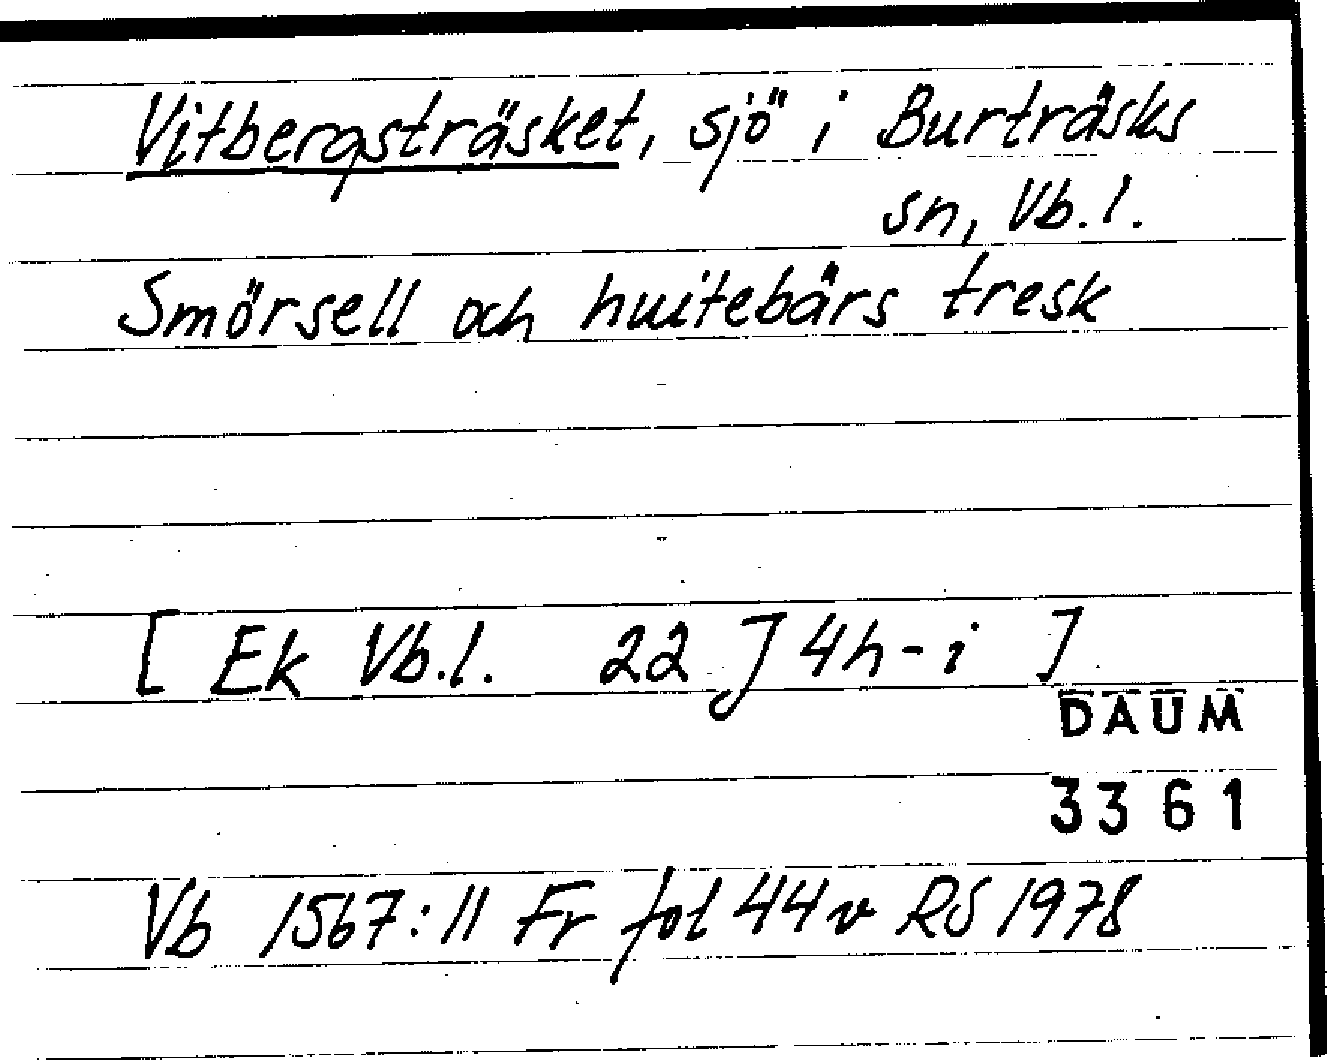 Vitbergsträsket, sjö i Burträsks
sn, Vb.l.
Smörsell och huitebärs tresk
[ Ek Vb.l. 22 J 4h-i ]
DAUM
3361
Vb 1567:11 Fr fol 44v RS 1978